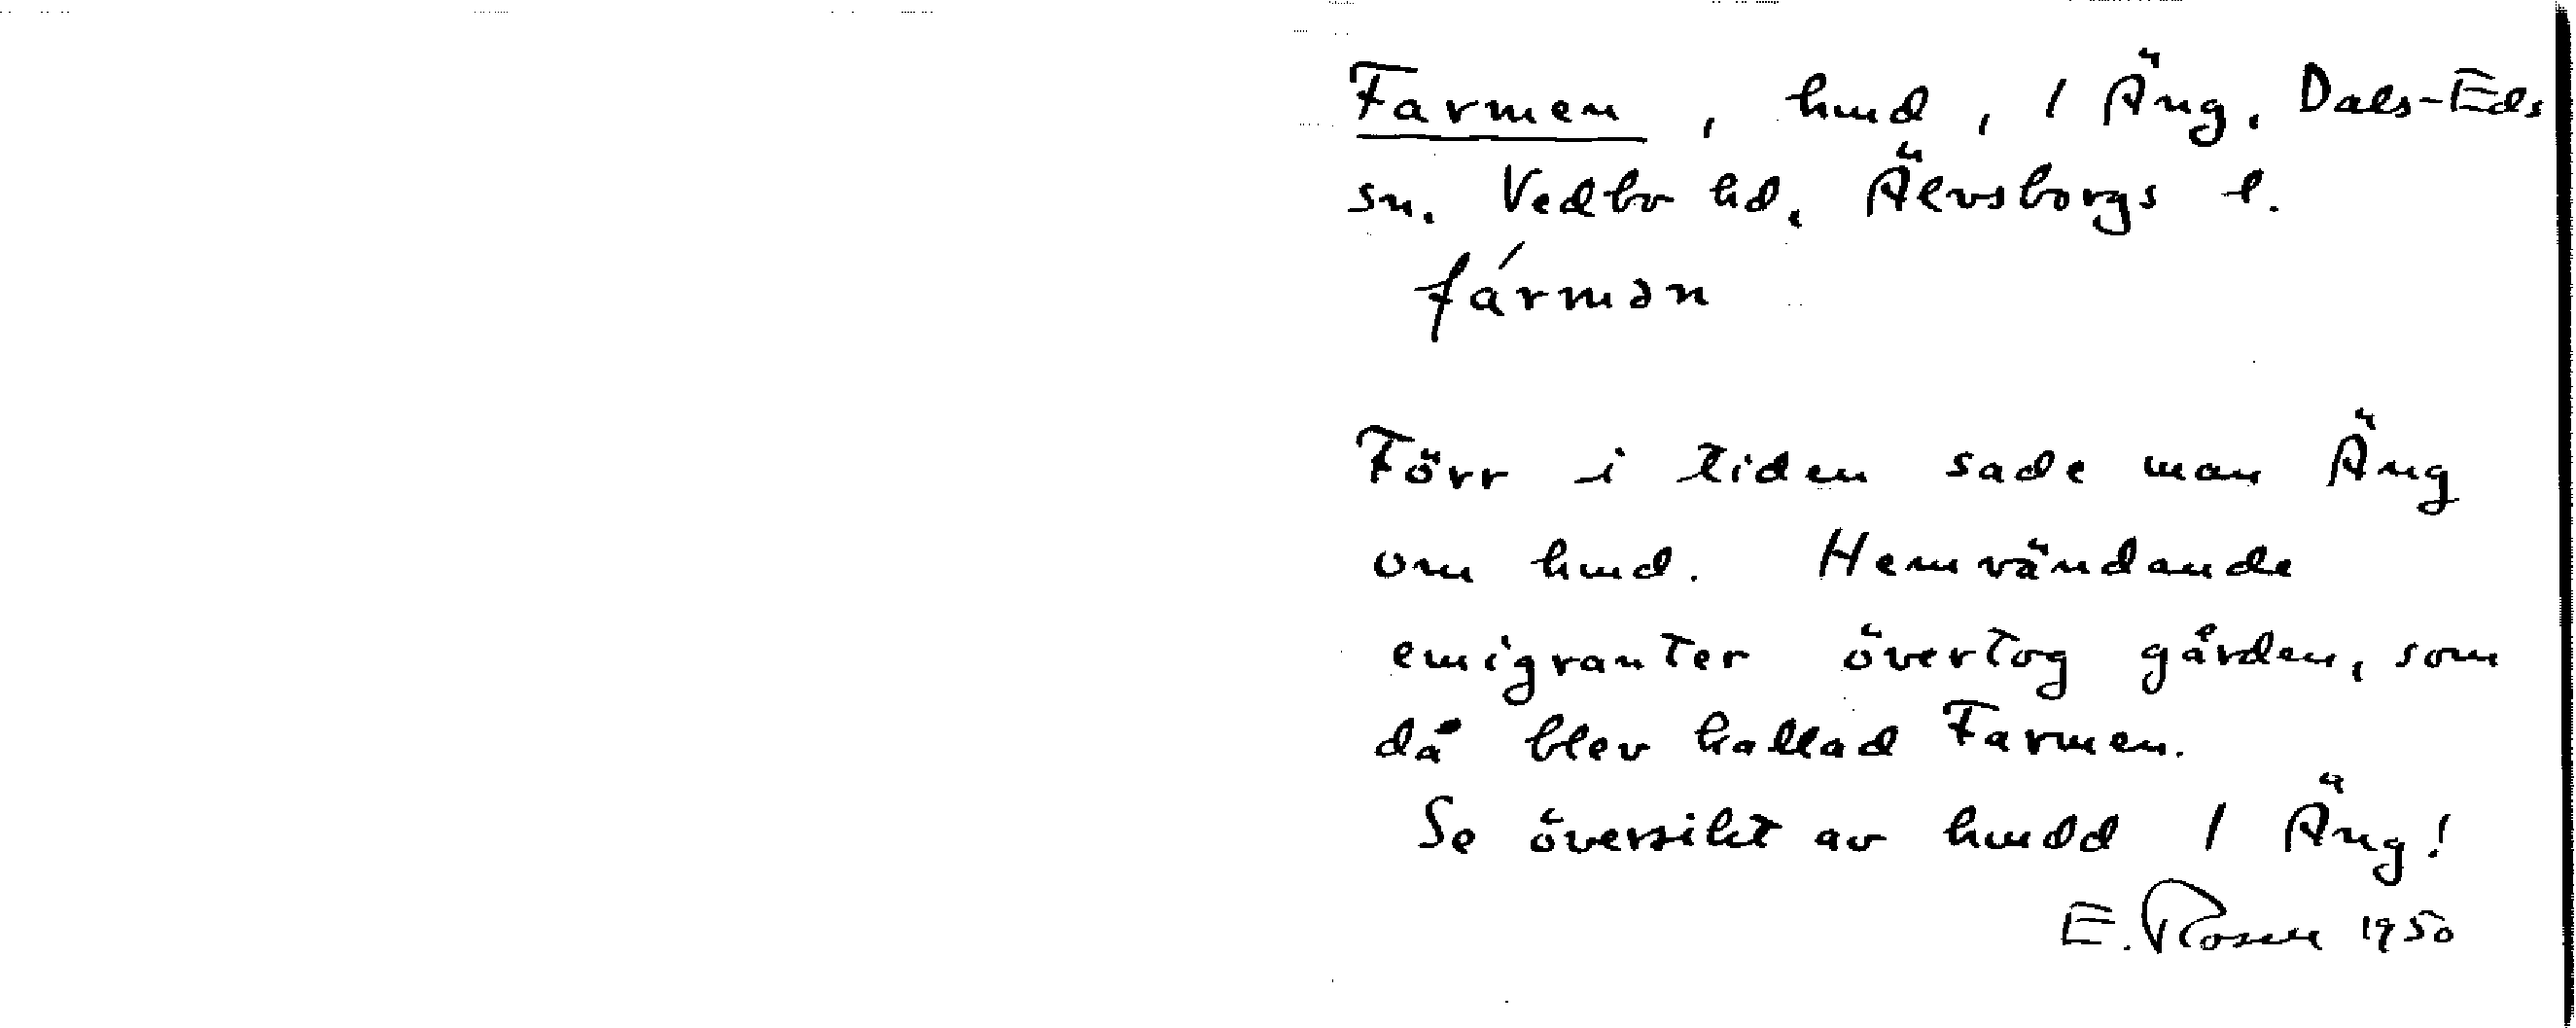 Farmen, hmd, 1 Äng, Dals-Eds
sn. Vedbo hd, Älvsborgs l.
fármən
Förr i tiden sade man Äng
om hmd. Hemvändande
emigranter övertog gården, som
då blev kallad Farmen.
Se översikt av hmdd 1 Äng!
E. Rosell 1950